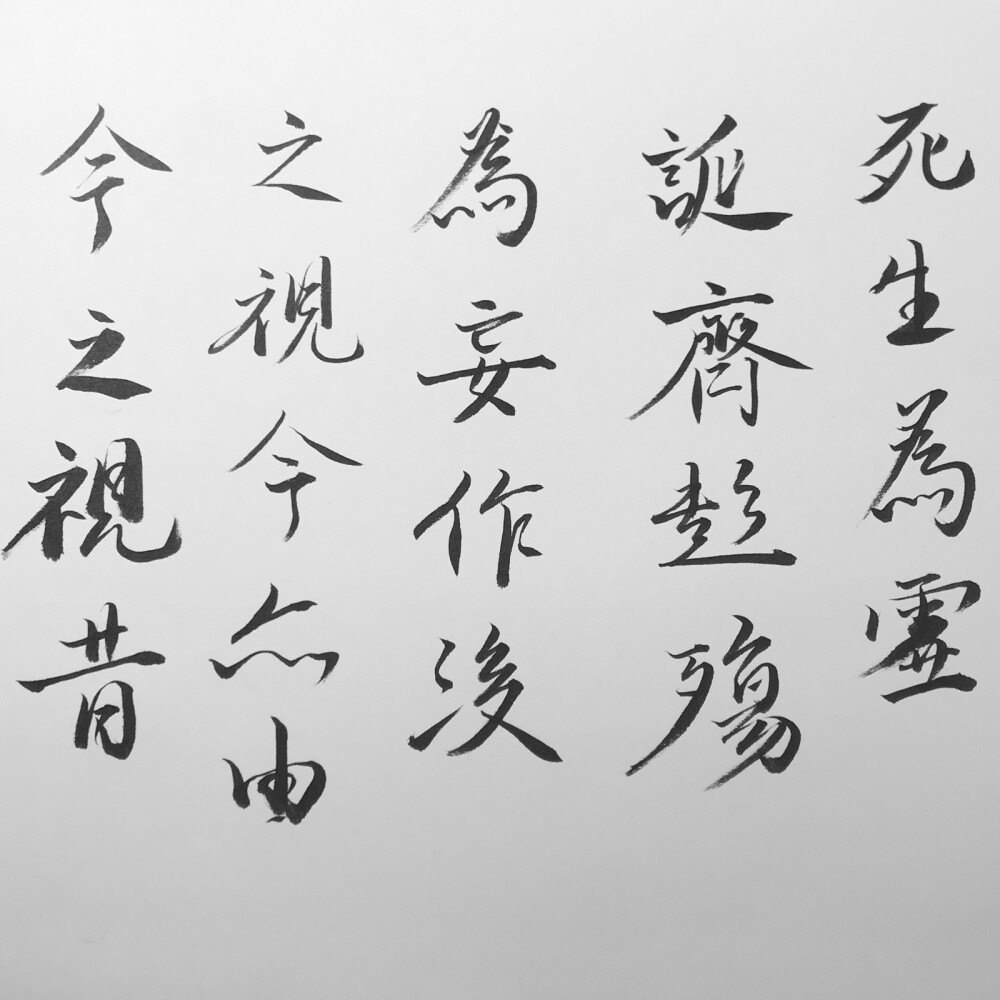 死生為虛
誕齊彭殤
為妄作後
之視今亦由
今之視昔